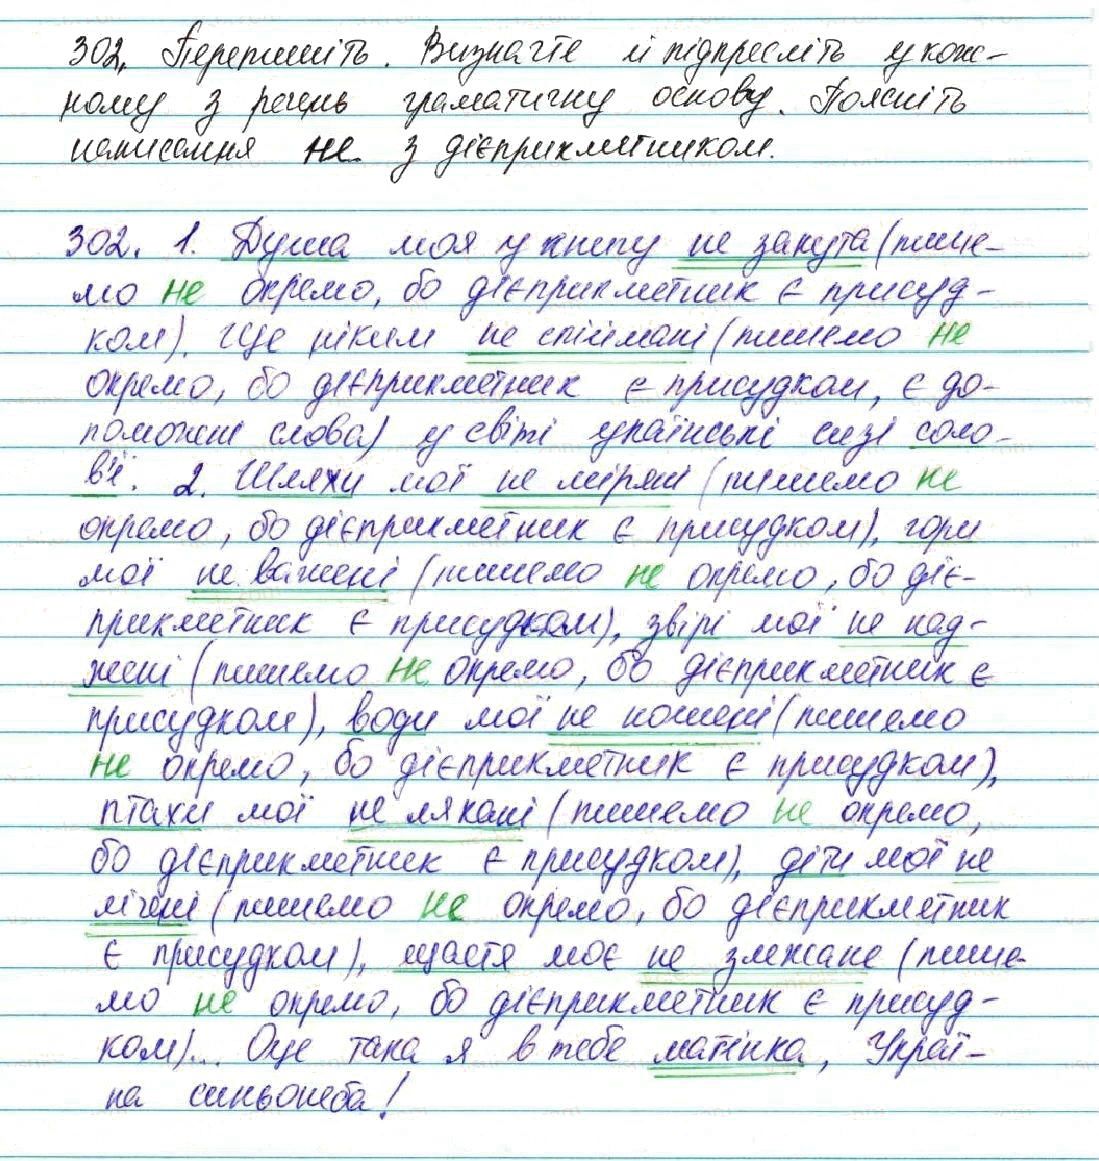 302. Перепишіть. Визначте й підкресліть у кож-
ному з речень граматичну основу. Поясніть
написання не з дієприкметником.
302. 1. Душа моя у книгу не закута (пише-
мо не окремо, бо дієприкметник є присуд-
ком). Ще ніким не спіймані (пишемо не
окремо, бо дієприкметник є присудком, є до-
поможні слова) у світі українські сизі соло-
в'ї. 2. Шляхи мої не міряні (пишемо не
окремо, бо дієприкметник є присудком), гори
мої неважені (пишемо не окремо, бо діє-
прикметник є присудком), звірі мої не над-
жені (пишемо не окремо, бо дієприкметник є
присудком), води мої не ношені (пишемо
не окремо, бо дієприкметник є присудком),
птахи мої не лякані (пишемо не окремо,
бо дієприкметник є присудком), діти мої не
лічені (пишемо не окремо, бо дієприкметник
є присудком), щастя моє не злежане (пише-
мо не окремо, бо дієприкметник є присуд-
ком)... Оце така я в тебе матінка, Украї-
на синьонеба!